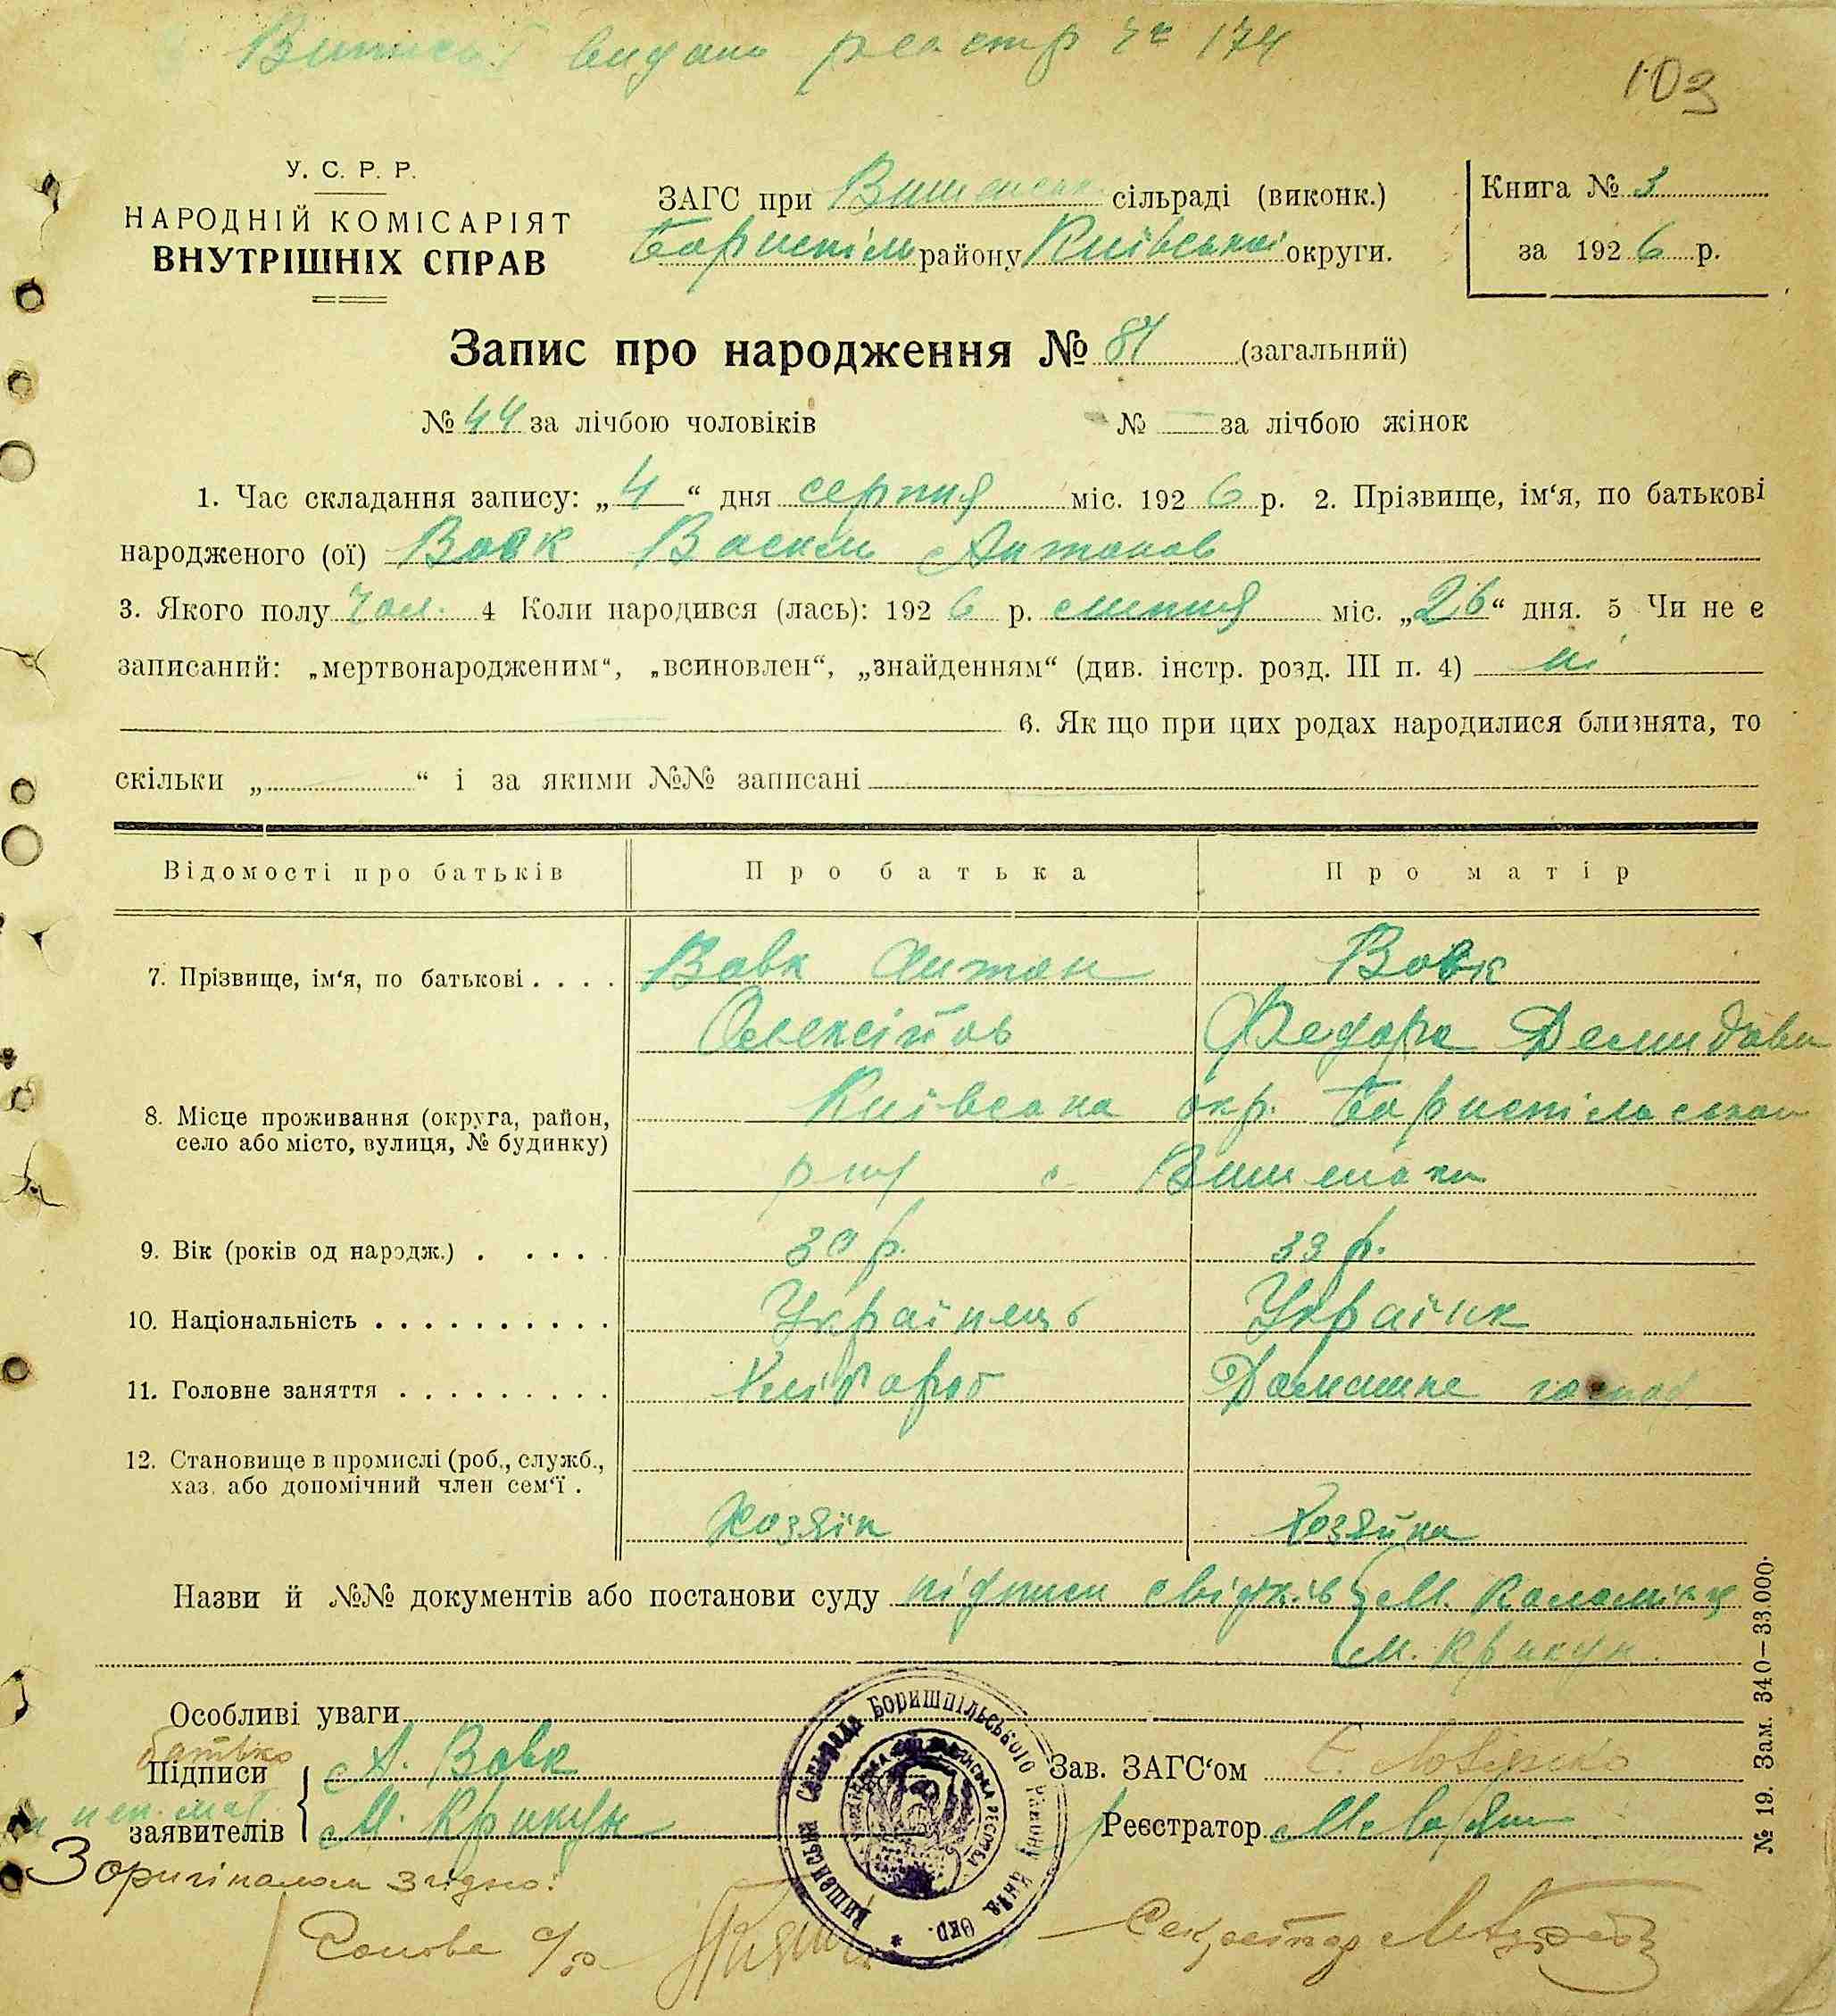 видано реєстр № 174
103
У. С. Р. Р.
НАРОДНІЙ КОМІСАРІЯТ
ВНУТРІШНІХ СПРАВ
ЗАГС при сільраді (виконк.)
району Київської округи.
Книга № 3
за 1926 р.
Запис про народження № 81 (загальний)
№ 44 за лічбою чоловіків № — за лічбою жінок
1. Час складання запису: „4“ дня серпня міс. 1926 р. 2. Прізвище, ім‘я, по батькові
народженого (ої) Вовк Василь Антонов
3. Якого полу Чол. 4 Коли народився (лась): 1926 р. липня міс. „26“ дня. 5 Чи не є
записаний: „мертвонародженим“, „всиновлен“, „знайденням“ (див. інстр. розд. III п. 4) ні
6. Як що при цих родах народилися близнята, то
скільки „ “ і за якими №№ записані
Відомості про батьків Про батька Про матір
7. Прізвище, ім‘я, по батькові . . . . Вовк Антон Вовк
Олексійов Федора Демидова
8. Місце проживання (округа, район, Київська окр. Бориспільськ
село або місто, вулиця, № будинку) с. Вишеньки
9. Вік (років од народж.) . . . . . 30 р. 33 р.
10. Національність . . . . . . . . . . Українець Українк
11. Головне заняття . . . . . . . . . Хлібороб Домашне господ
12. Становище в промислі (роб., служб.,
хаз. або допомічний член сем‘ї .
Хозяїн Хозяйка
Назви й №№ документів або постанови суду підписи свідків М. Коломієць
М. Крикун
Особливі уваги
батько
Підписи А. Вовк Зав. ЗАГС‘ом
заявителів М. Крикун Реєстратор
З оригіналом згідно:
Голова с/р Секретар
ВИШЕНСЬКА СІЛЬРАДА БОРИШПІЛЬСЬКОГО РАЙОНУ КИЇВ. ОКР.
№ 19. Зам. 340—33.000.